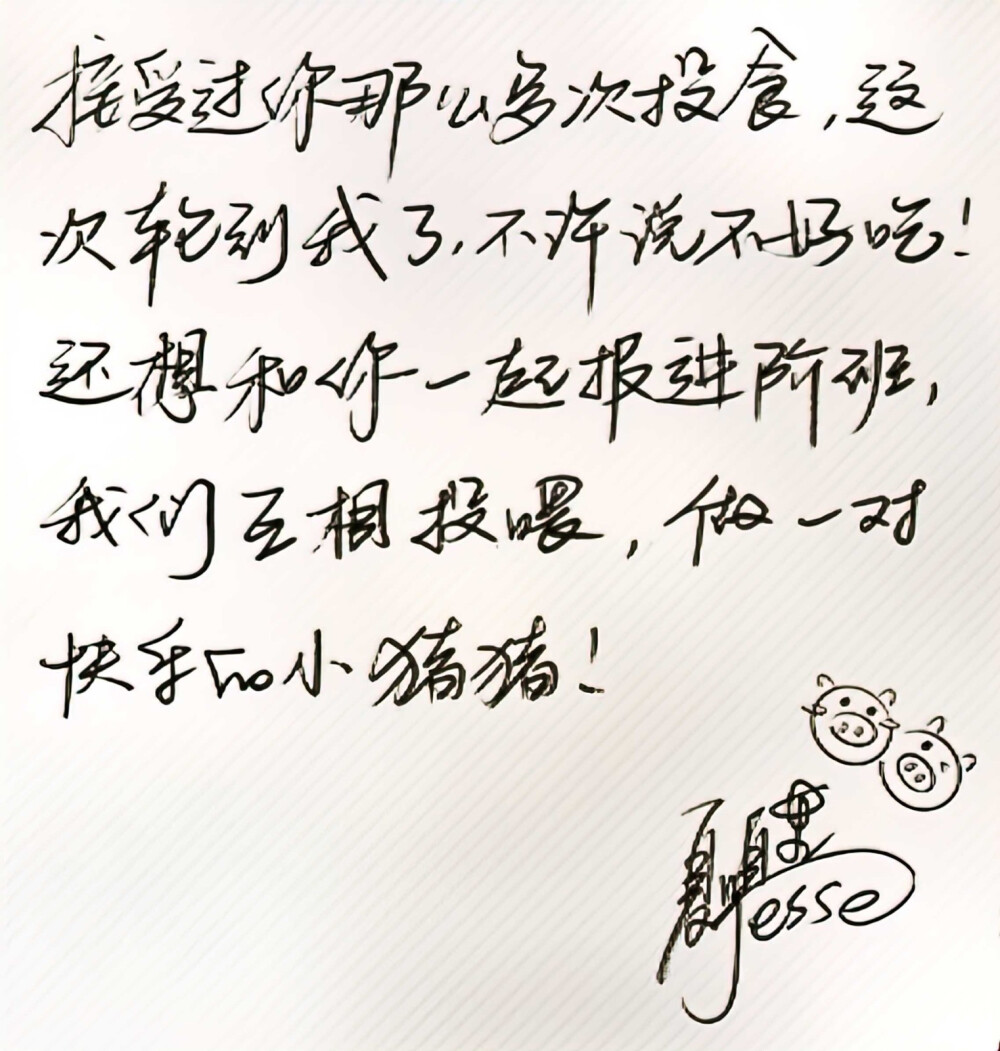 接受过你那么多次投食，这
次轮到我了，不许说不好吃！
还想和你一起报进阶班，
我们互相投喂，做一对
快乐的小猪猪！
夏明昊
Jesse